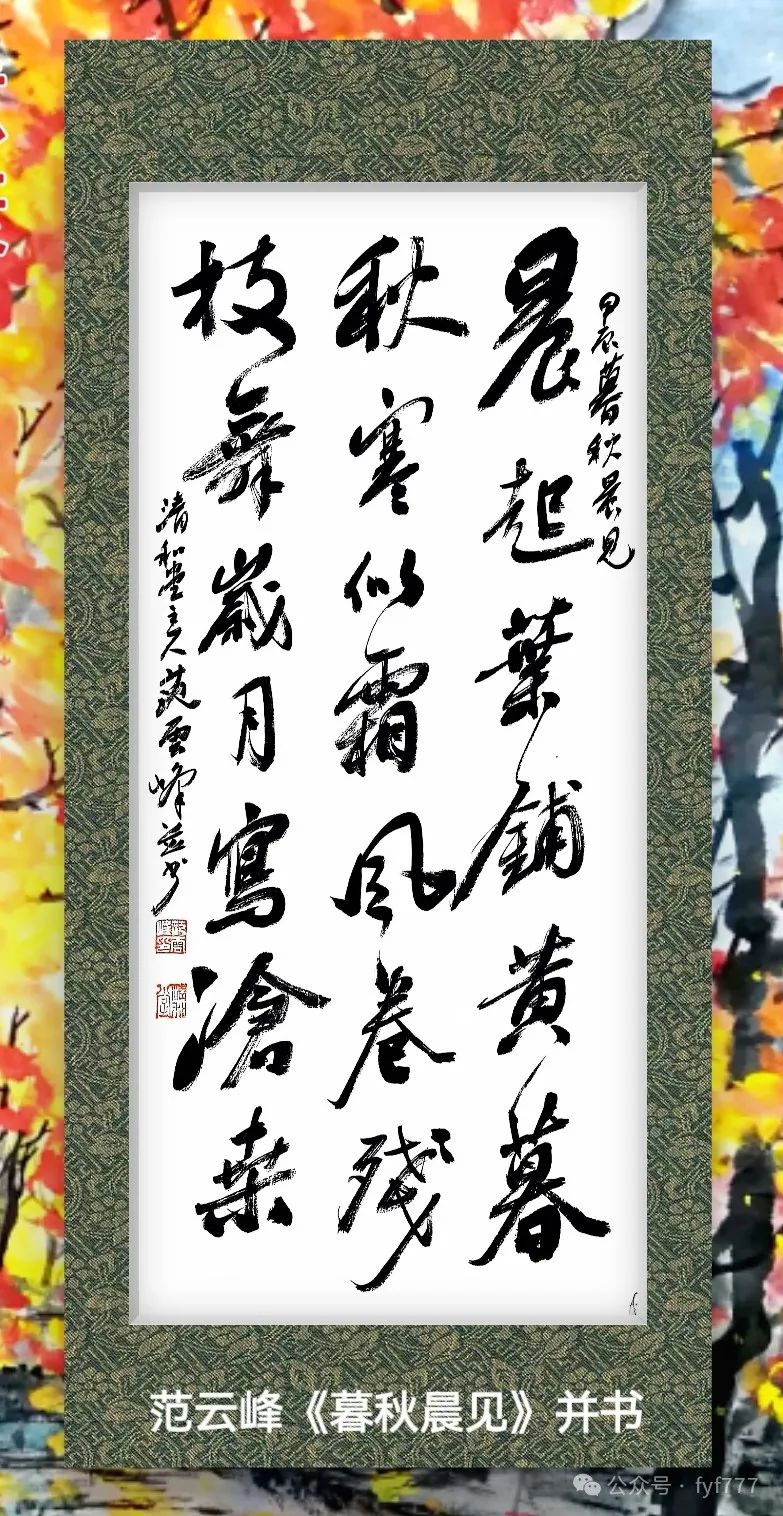 甲辰暮秋晨见
晨起葉鋪黄暮
秋寒似霜風卷残
枝舞歲月寫滄桑
清和堂主人范雲峰并书
范云峰《暮秋晨见》并书
公众号·fyf777